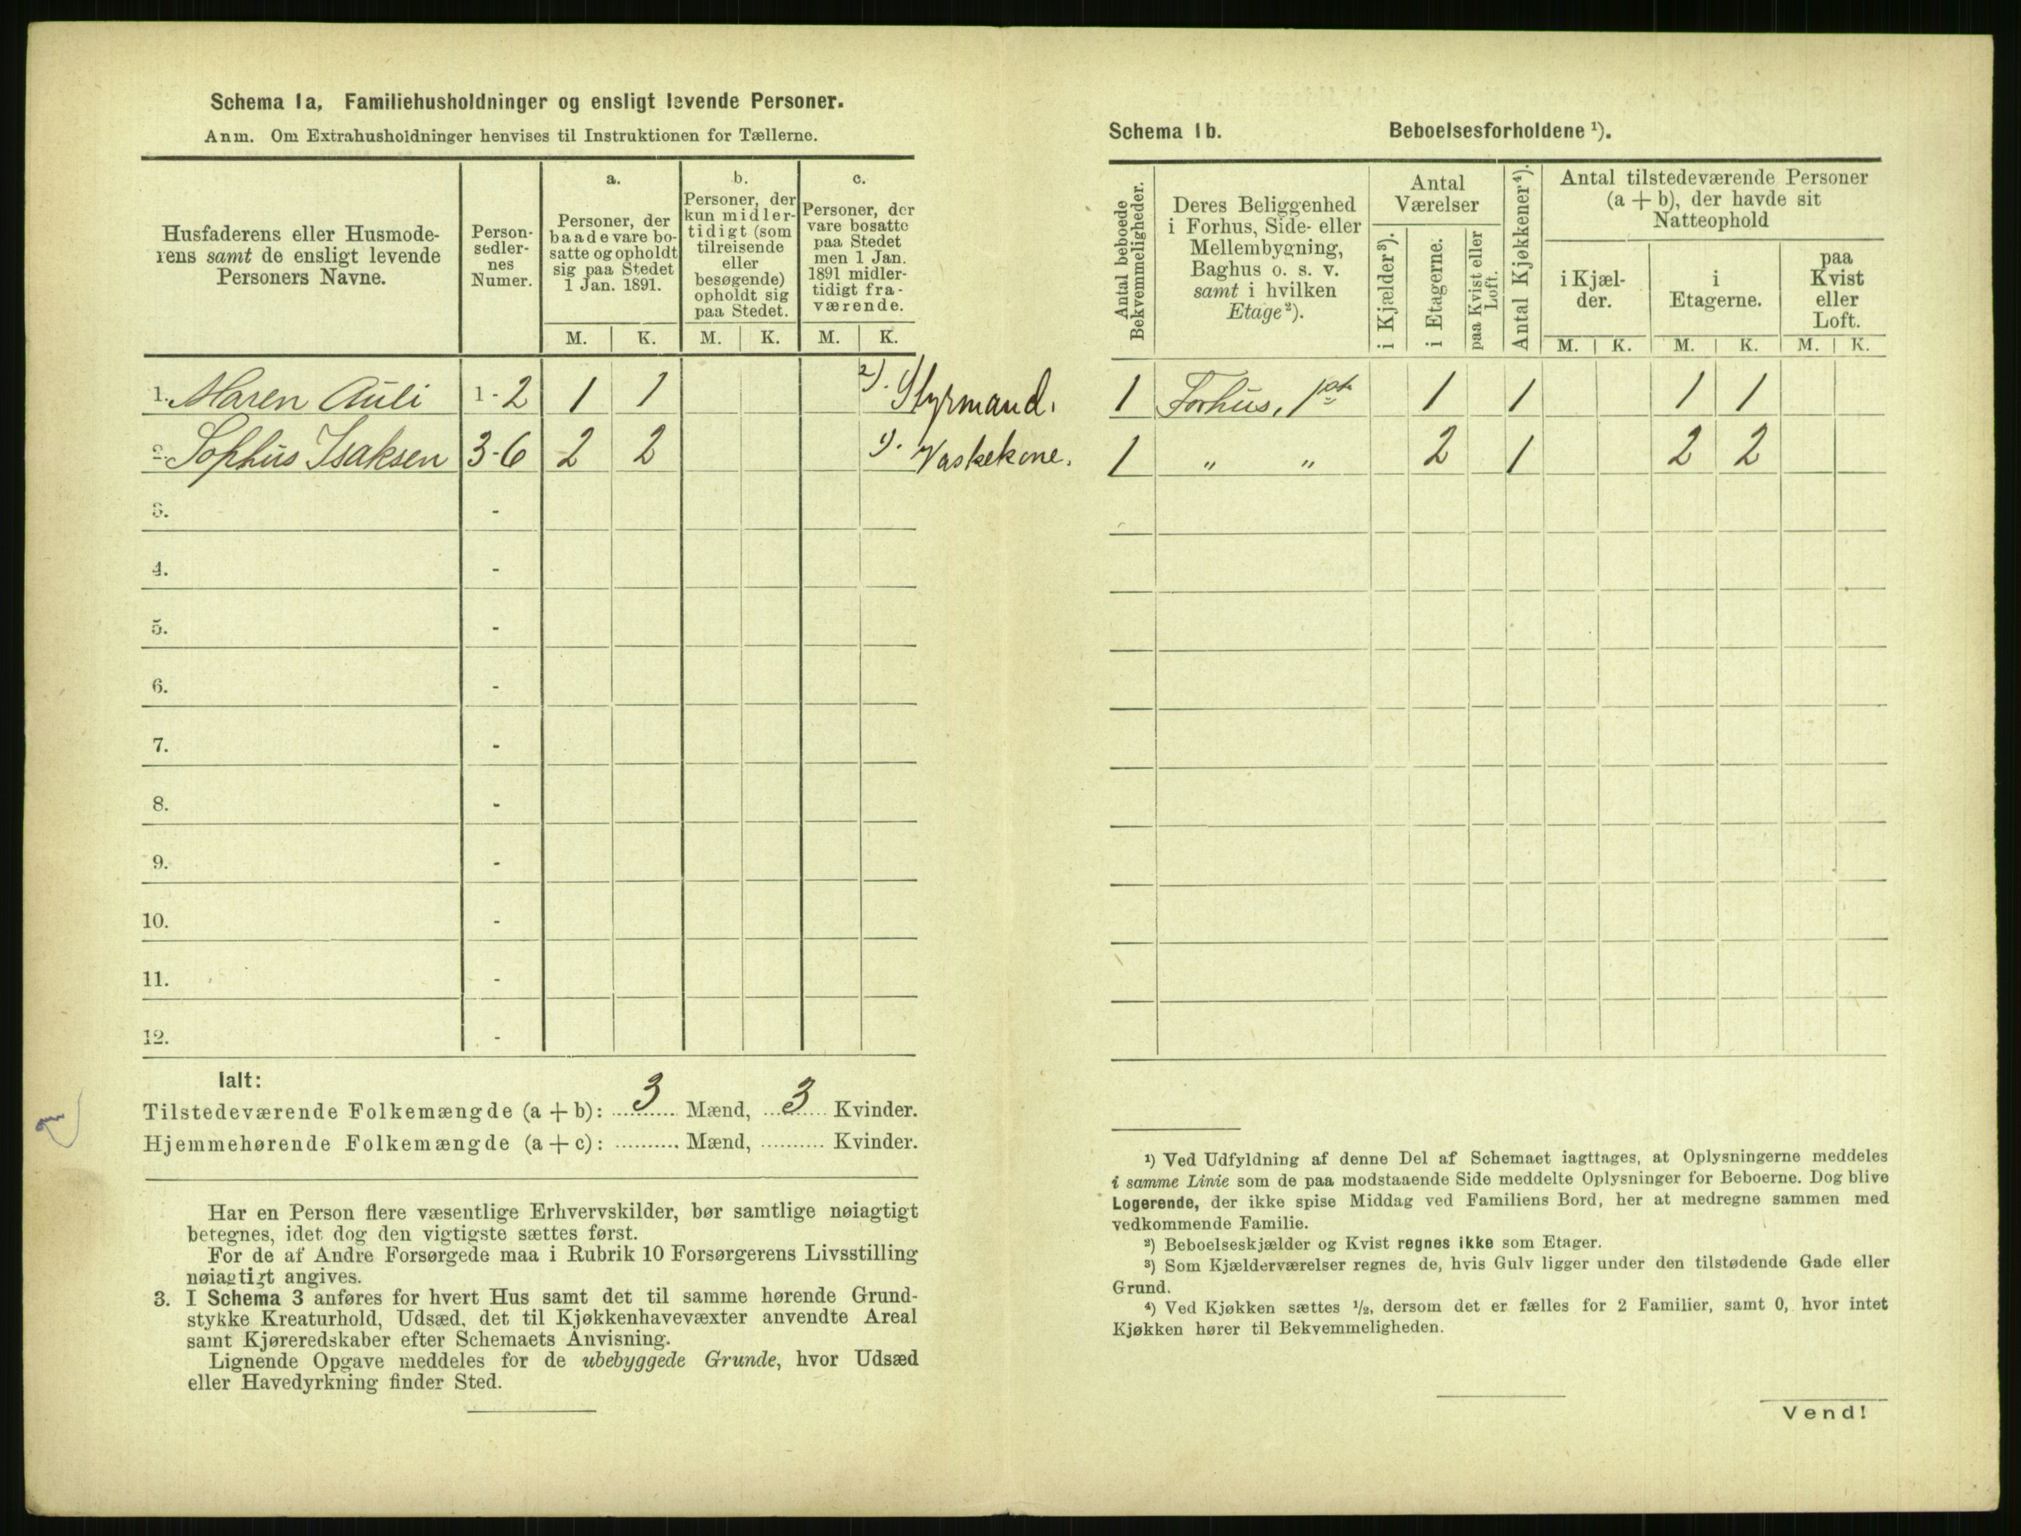 Schema 1a, Familiehusholdninger og ensligt levende Personer.
Anm. Om Extrahusholdninger henvises til Instruktionen for Tællerne.
Husfaderens eller Husmoderens samt de ensligt levende Personers Navne.
Person-sedlernes Numer.
a.
Personer, der baade vare bosatte og opholdt sig paa Stedet 1 Jan. 1891.
b.
Personer, der kun midlertidigt (som tilreisende eller besøgende) opholdt sig paa Stedet.
c.
Personer, der vare bosatte paa Stedet men 1 Jan. 1891 midlertidigt fraværende.
M. K. M. K. M. K.
1. Maren Auli 1-2 1 1 2). Styrmand.
2. Sophus Isaksen 3-6 2 2 1). Vaskekone.
3. -
4. -
5. -
6. -
7. -
8. -
9. -
10. -
11. -
12. -
Ialt:
Tilstedeværende Folkemængde (a + b): 3 Mænd, 3 Kvinder.
Hjemmehørende Folkemængde (a + c): .......... Mænd, .......... Kvinder.
Har en Person flere væsentlige Erhvervskilder, bør samtlige nøiagtigt
betegnes, idet dog den vigtigste sættes først.
For de af Andre Forsørgede maa i Rubrik 10 Forsørgerens Livsstilling
nøiagtigt angives.
3. I Schema 3 anføres for hvert Hus samt det til samme hørende Grund-
stykke Kreaturhold, Udsæd, det til Kjøkkenhavevæxter anvendte Areal
samt Kjøreredskaber efter Schemaets Anvisning.
Lignende Opgave meddeles for de ubebyggede Grunde, hvor Udsæd
eller Havedyrkning finder Sted.
Schema 1b. Beboelsesforholdene ¹).
Antal beboede Bekvemmeligheder.
Deres Beliggenhed i Forhus, Side- eller Mellembygning, Baghus o. s. v. samt i hvilken Etage²).
Antal Værelser
i Kjælder³).
i Etagerne.
paa Kvist eller Loft.
Antal Kjøkkener⁴).
Antal tilstedeværende Personer (a + b), der havde sit Natteophold
i Kjælder.
i Etagerne.
paa Kvist eller Loft.
M. K. M. K. M. K.
1 Forhus, 1ste 1 1 1 1
1 " " 2 1 2 2
¹) Ved Udfyldning af denne Del af Schemaet iagttages, at Oplysningerne meddeles
i samme Linie som de paa modstaaende Side meddelte Oplysninger for Beboerne. Dog blive
Logerende, der ikke spise Middag ved Familiens Bord, her at medregne sammen med
vedkommende Familie.
²) Beboelseskjælder og Kvist regnes ikke som Etager.
³) Som Kjælderværelser regnes de, hvis Gulv ligger under den tilstødende Gade eller
Grund.
⁴) Ved Kjøkken sættes ½, dersom det er fælles for 2 Familier, samt 0, hvor intet
Kjøkken hører til Bekvemmeligheden.
Vend!